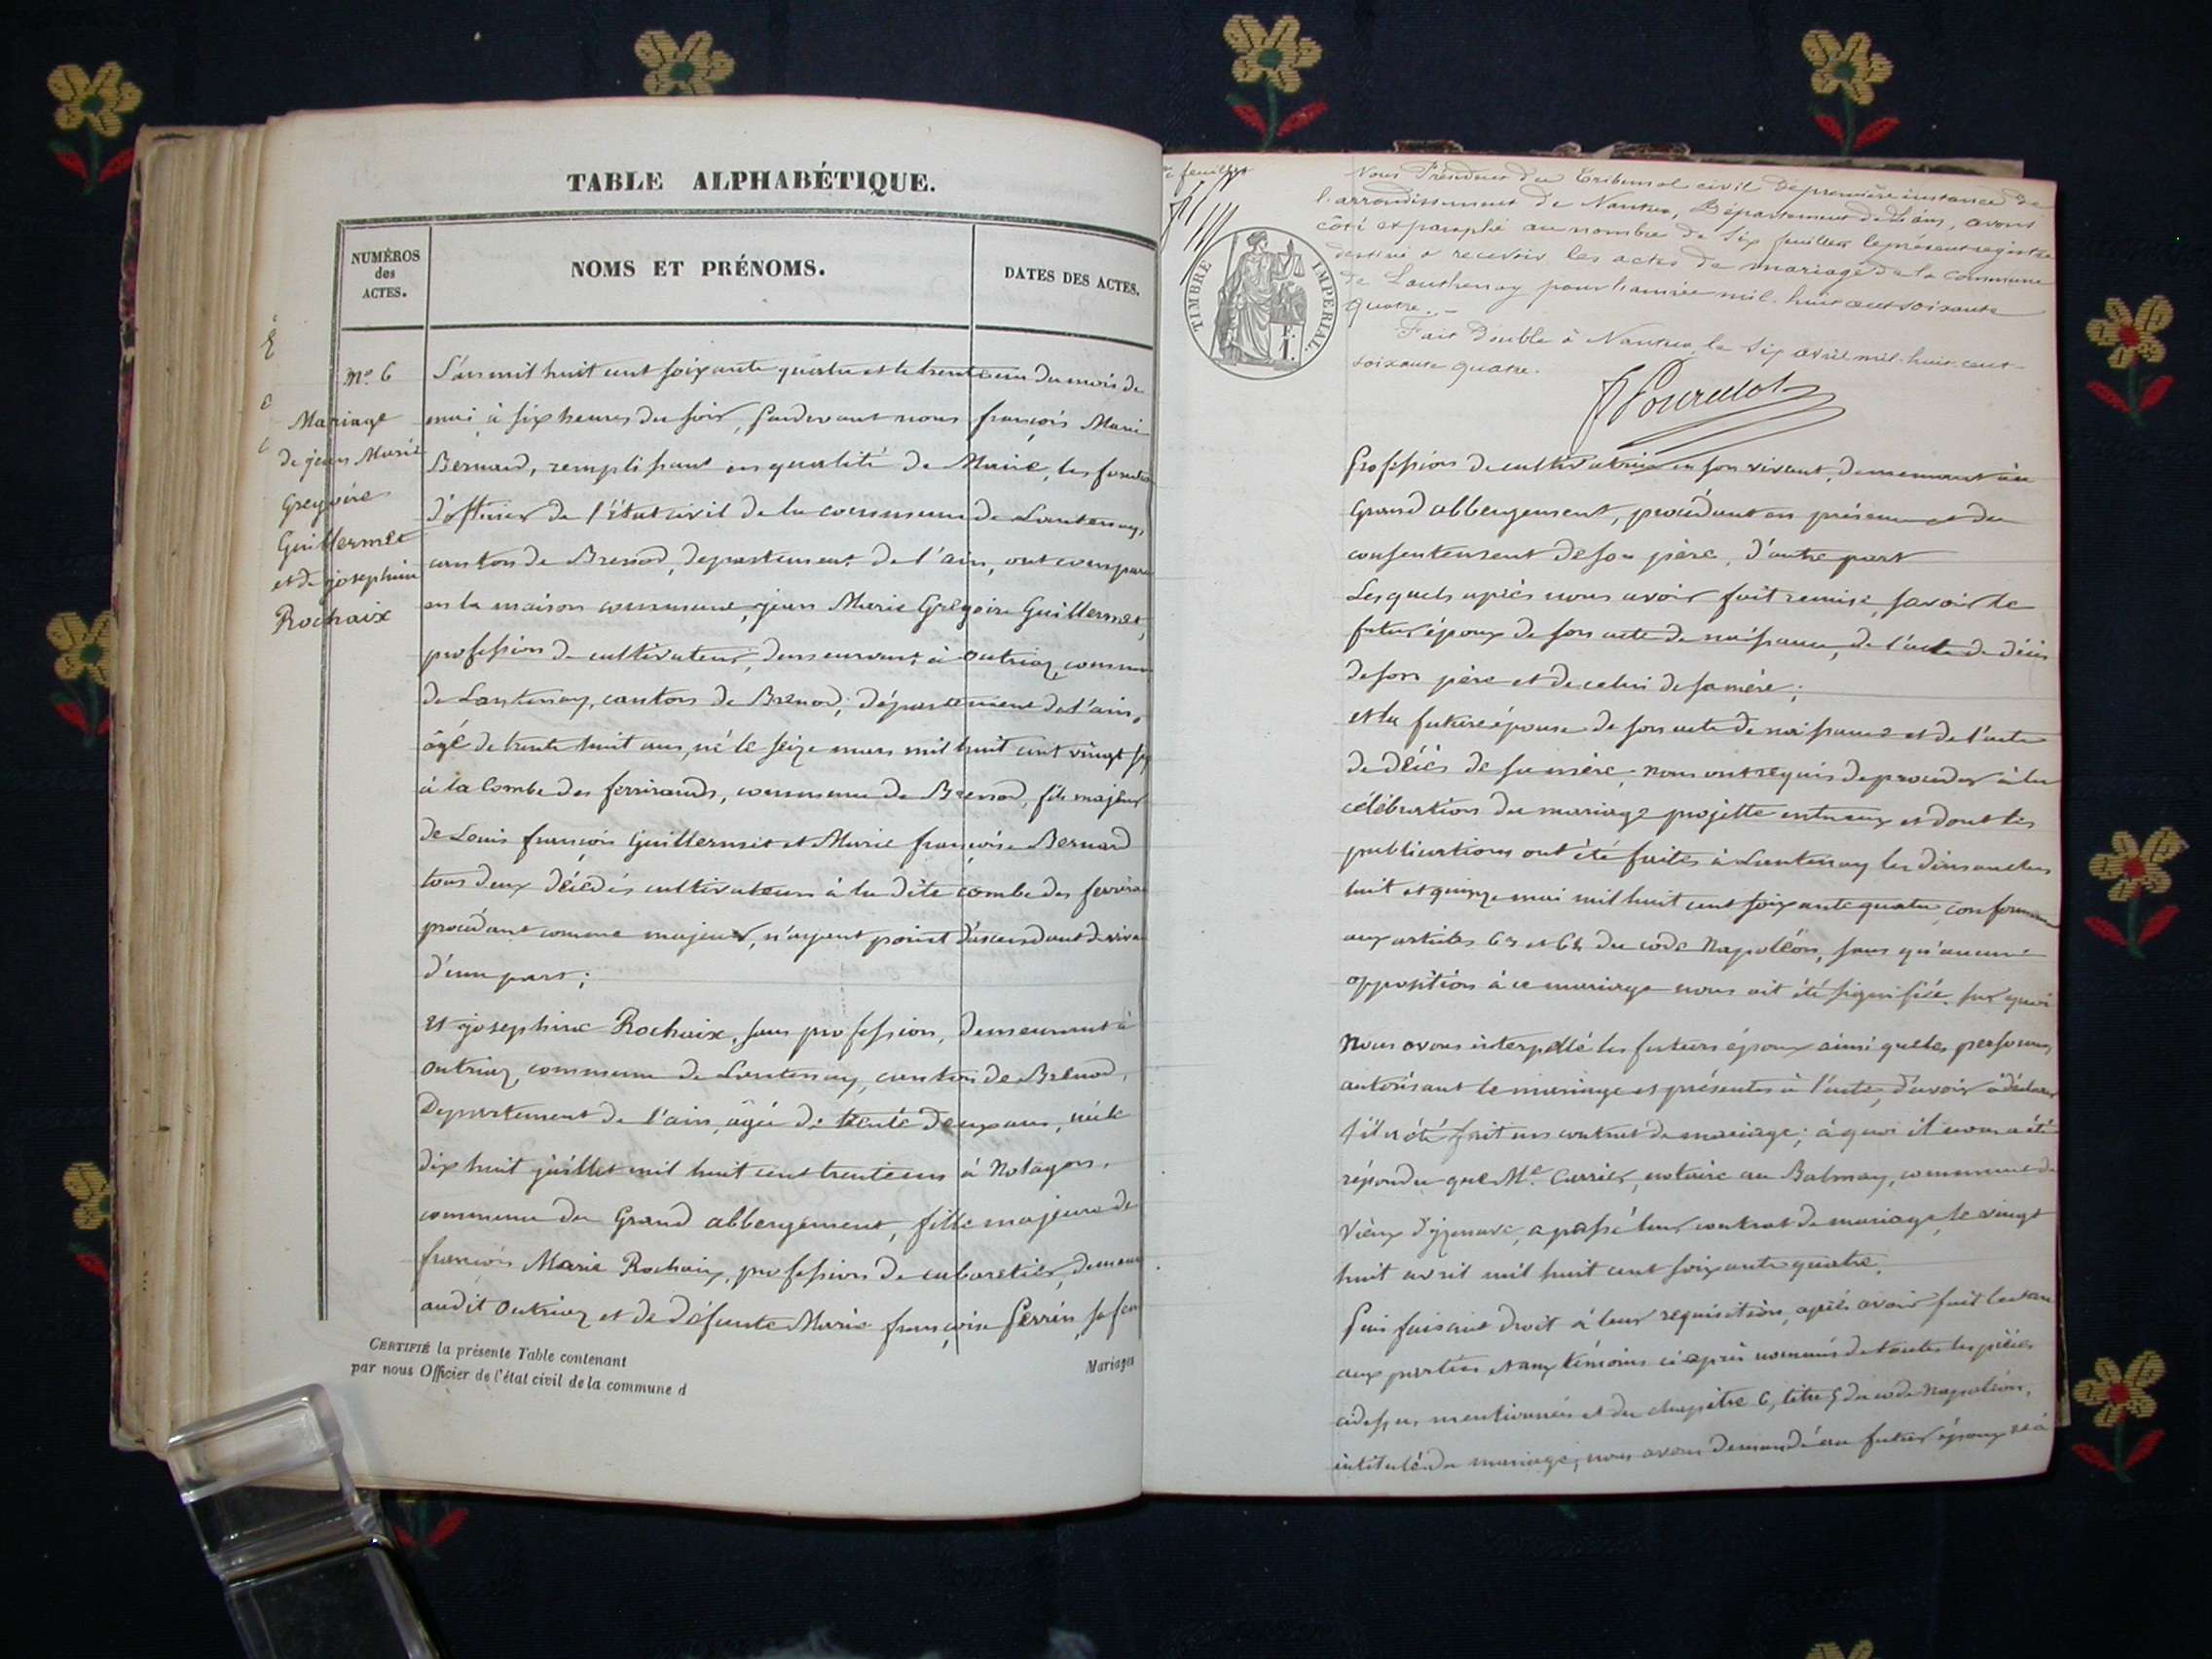 TABLE ALPHABÉTIQUE.
NUMÉROS
des
ACTES.
NOMS ET PRÉNOMS.
DATES DES ACTES.
N.o 6
Mariage
de jean Marie
Gregoire
Guillermet
et de josephine
Rochaix
L'an mil huit cent soixante quatre et le trente un du mois de
mai à six heures du soir, pardevant nous françois Marie
Bernard, remplissant en qualité de Maire, les fonctions
d'officier de l'état civil de la commune de Lantenay,
canton de Brenod, departement de l'ain, ont comparu
en la maison commune, jean Marie Grégoire Guillermet,
profession de cultivateur, demeurant à Outriaz, commune
de Lantenay, canton de Brénod, département de l'ain,
âgé de trente huit ans, né le seize mars mil huit cent vingt six
à la Combe des ferrirands, commune de Brenod, fils majeur
de Louis françois Guillermet et Marie françoise Bernard
tous deux décédés cultivateurs à la dite combe des
procédant comme majeur, n'ayant point d'ascendant de vivant
d'une part;
Et josephine Rochaix, sans profession, demeurant à
Outriaz, commune de Lantenay, canton de Brénod,
Departement de l'ain, âgée de trente deux ans, née le
dix huit juillet mil huit cent trente un à Nolagon,
commune du Grand abbergement, fille majeure de
françois Marie Rochaix, profession de cabaretier, demeurant
audit Outriaz et de défunte Marie françoise Perrin, sa
CERTIFIÉ la présente Table contenant
par nous Officier de l'état civil de la commune d
Mariages
feuillet
Nous Président du Tribunal civil de première instance de
l'arrondissement de Nantua, Département de l'ain, avons
côté et paraphé au nombre de six feuillets le présent registre
destiné à recevoir les actes de mariage de la commune
de Lanthenay pour l'année mil huit cent soixante
quatre. -
Fait Double à Nantua le six avril mil huit cent
soixante quatre.
TIMBRE IMPÉRIAL.
profession de cultivatrice en son vivant, demeurant au
Grand abbergement, procédant en présence et du
consentement de son père, d'autre part
Lesquels après nous avoir fait remise, savoir le
futur époux de son acte de naissance, de l'acte de décès
de son père et de celui de sa mère;
et la future épouse de son acte de naissance et de l'acte
de décès de sa mère; nous ont requis de procéder à la
célébration du mariage projetté entre eux et dont les
publications ont été faites à Lantenay les dimanches
huit et quinze mai mil huit cent soixante quatre
aux articles 63 et 64 du code Napoléon, sans qu'aucune
opposition à ce mariage nous ait été signifiée, sur quoi
Nous avons interpellé les futurs époux ainsi que les personnes
autorisant le mariage et présentes à l'acte, d'avoir à déclarer
s'il a été fait un contrat de mariage; à quoi il nous a été
répondu que Me. Carrier, notaire au Balmay, commune de
Vieux d'izenave, a passé leur contrat de mariage le vingt
huit avril mil huit cent soixante quatre.
Puis faisant droit à leur requisition, après avoir fait lecture
aux parties et aux témoins ci après nommés de toutes les pièces
cidessus mentionnées et du chapitre 6, titre 5 du code Napoléon,
intitulé du mariage, nous avons demandé au futur époux et à